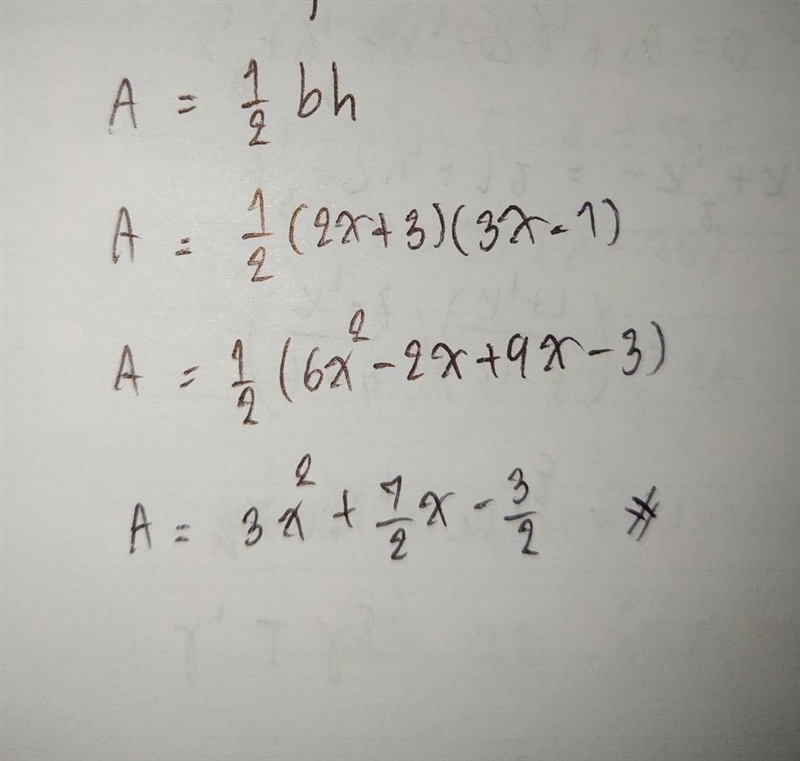 A = 1/2 bh
A = 1/2 (2x+3)(3x-1)
A = 1/2 (6x² - 2x + 9x - 3)
A = 3x² + 7/2 x - 3/2